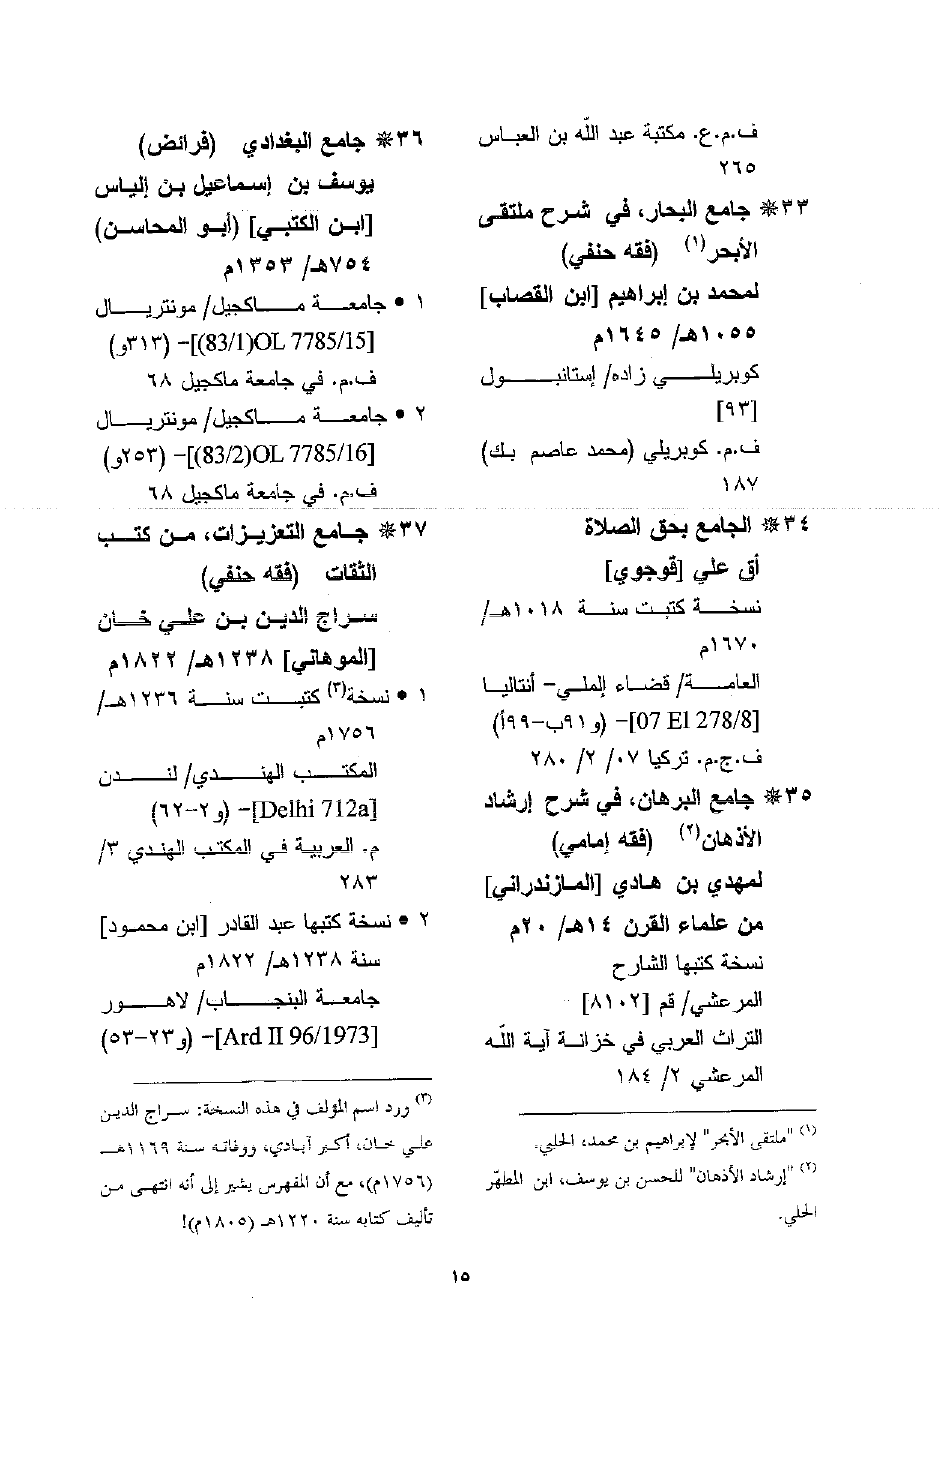 ف.م.ع. مكتبة عبد الله بن العباس
٢٦٥
٣٣※ جامع البحار، في شرح ملتقى
الأبحر(١) (فقه حنفي)
لمحمد بن إبراهيم [ابن القصاب]
١٠٥٥هـ/ ١٦٤٥م
كوبريلي زاده/ إستانبول
[٩٣]
ف.م. كوبريلي (محمد عاصم بك)
١٨٧
٣٤※ الجامع بحق الصلاة
أق علي [قوجوي]
نسخة كتبت سنة ١٠١٨هـ/
١٦٧٠م
العامة/ قضاء إلملي- أنتاليا
[07 El 278/8]- (و٩١ب-٩٩أ)
ف.ج.م. تركيا ٠٧/ ٢/ ٢٨٠
٣٥※ جامع البرهان، في شرح إرشاد
الأذهان(٢) (فقه إمامي)
لمهدي بن هادي [المازندراني]
من علماء القرن ١٤هـ/ ٢٠م
نسخة كتبها الشارح
المرعشي/ قم [٨١٠٢]
التراث العربي في خزانة آية الله
المرعشي ٢/ ١٨٤
(١) "ملتقى الأبحر" لإبراهيم بن محمد، الحلبي.
(٢) "إرشاد الأذهان" للحسن بن يوسف، ابن المطهّر
الحلي.
٣٦※ جامع البغدادي (فرائض)
يوسف بن إسماعيل بن إلياس
[ابن الكتبي] (أبو المحاسن)
٧٥٤هـ/ ١٣٥٣م
١ • جامعة ماكجيل/ مونتريال
[(83/1)OL 7785/15]- (٣١٣و)
ف.م. في جامعة ماكجيل ٦٨
٢ • جامعة ماكجيل/ مونتريال
[(83/2)OL 7785/16]- (٢٥٣و)
ف.م. في جامعة ماكجيل ٦٨
٣٧※ جامع التعزيزات، من كتب
الثقات (فقه حنفي)
سراج الدين بن علي خان
[الموهاني] ١٢٣٨هـ/ ١٨٢٢م
١ • نسخة(٣) كتبت سنة ١٢٣٦هـ/
١٧٥٦م
المكتب الهندي/ لندن
[Delhi 712a]- (و٢-٦٢)
م. العربية في المكتب الهندي ٣/
٢٨٣
٢ • نسخة كتبها عبد القادر [ابن محمود]
سنة ١٢٣٨هـ/ ١٨٢٢م
جامعة البنجاب/ لاهور
[Ard II 96/1973]- (و٢٣-٥٣)
(٣) ورد اسم المؤلف في هذه النسخة: سراج الدين
علي خان، أكبر آبادي، ووفاته سنة ١١٦٩هـ
(١٧٥٦م)، مع أن المفهرس يشير إلى أنه انتهى من
تأليف كتابه سنة ١٢٢٠هـ (١٨٠٥م)!
١٥